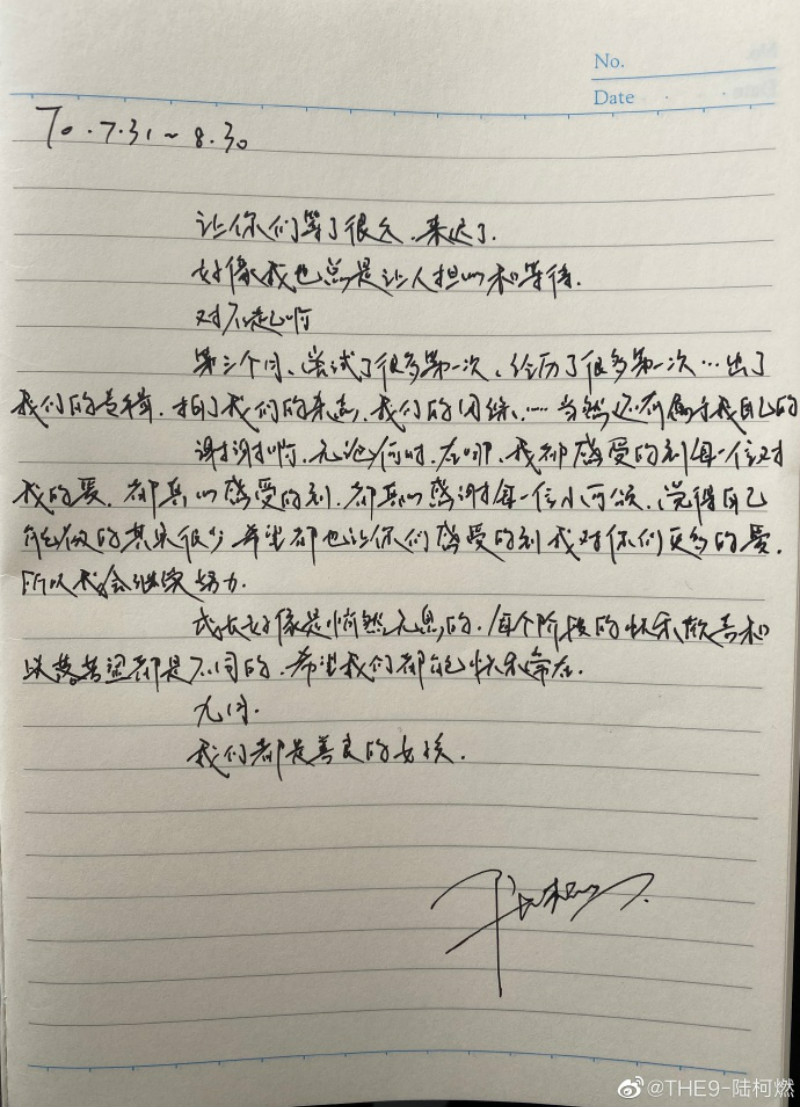 No.
Date
To.7.31~8.30
让你们等了很久.来迟了.
好像我也总是让人担心和等待.
对不起啊
第三个月、尝试了很多第一次、经历了很多第一次…出了
我们的专辑.拍了我们的杂志.我们的团综、…当然还有属于我自己的
谢谢啊.无论何时.在哪.我都感受的到每一位对
我的爱.都真心感受的到.都真心感谢每一位小可颂.觉得自己
能做的其实很少希望都也让你们感受的到我对你们更多的爱.
所以我会继续努力.
成长好像是悄然无息的.每个阶段的快乐、欢喜和
失落苦涩都是不同的.希望我们都能快乐常在.
九月.
我们都是善良的女孩.
@THE9-陆柯燃